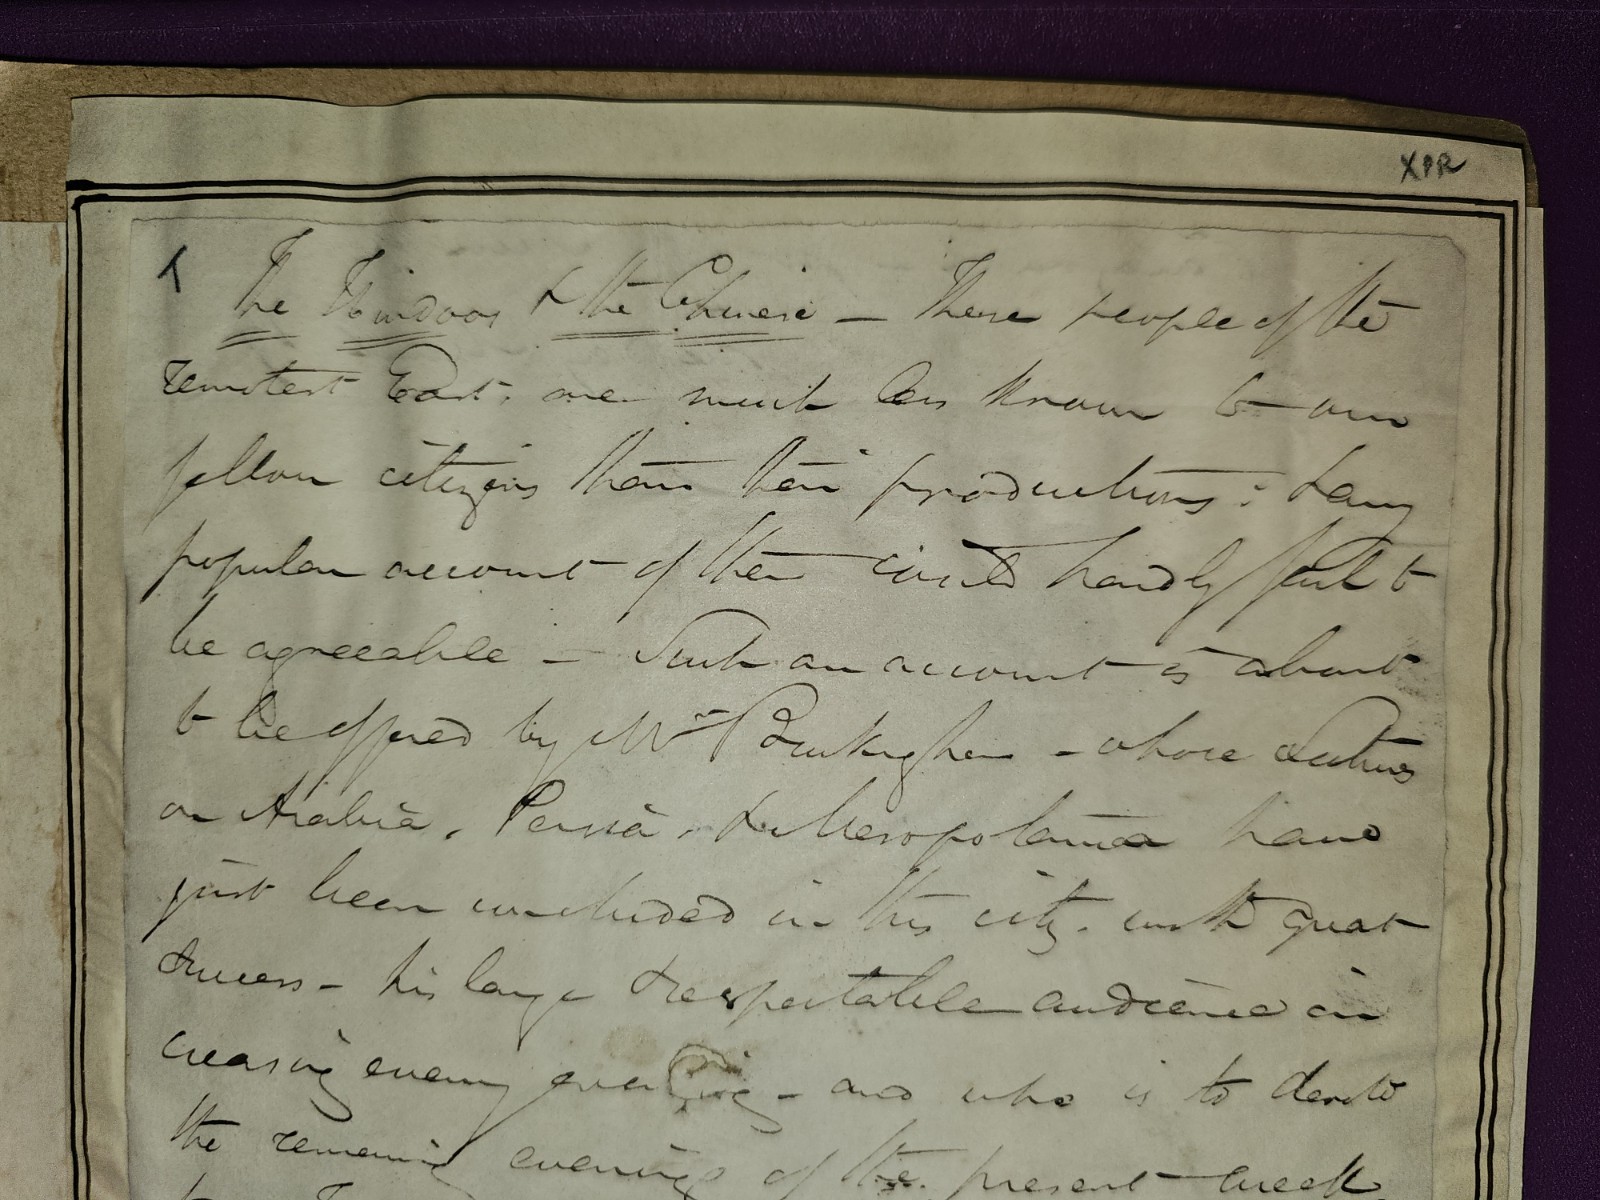 XPR
1 The Hindoos & the Chinese — These people of the
remotest East, are much less known to our
fellow citizens than their productions: & any
popular account of them could hardly fail to
be agreeable — Such an account is about
to be offered by Mr Buckingham — whose Lectures
on Arabia, Persia, & Mesopotamia have
just been concluded in this city, with great
success — his large & respectable audience in
creasing every evening — and who is to devote
the remaining evenings of the present week